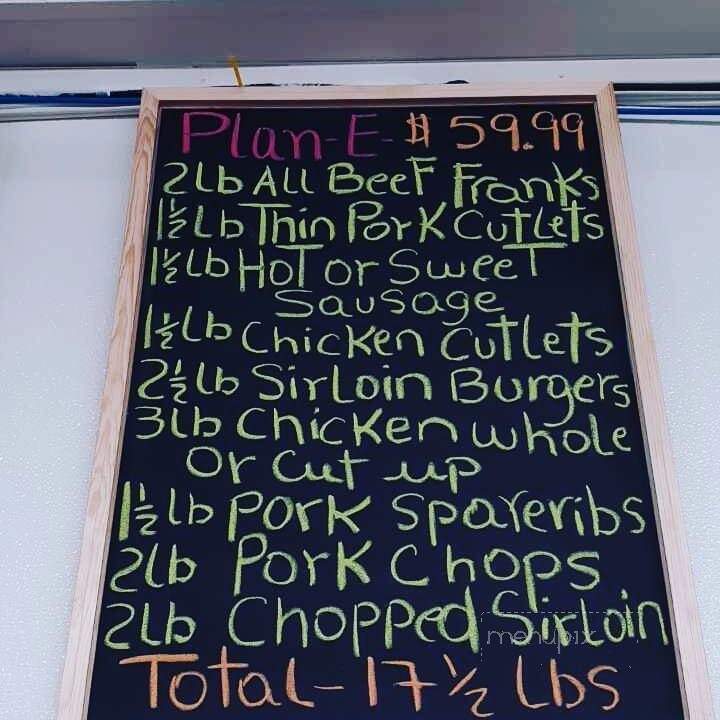 Plan-E-$59.99
2Lb ALL BeeF Franks
1½ Lb Thin PorK CutLets
1½ Lb HoT or SweeT
Sausage
1½ Lb Chicken CutLets
2½ Lb SirLoin Burgers
3Lb ChicKen whole
Or Cut up
1½ Lb PorK Spareribs
2Lb PorK Chops
2Lb Chopped SirLoin
menupix
TotaL-17½ Lbs